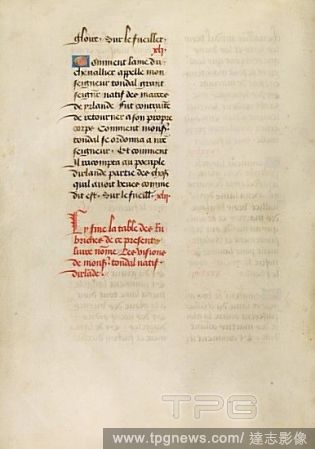 gloire. Sur le fueillet.
xlj
Comment lame du
chevallier appelle mon
seigneur tondal grant
seigneur natif des marces
de yrlande. Fut contrainte
de retourner a son propre
corps. Comment mons.
tondal se ordonna a nre
seigneur. Et comment
il racompta au peuple
dirlande partie des choses
quil avoit veues comme
dit est. Sur le fueillet. xlij.
Cy fine la table des Ru
briches de ce present
livre nomé Les visions
de mons. tondal natif
dirlāde.
TPG
www.tpgnews.com/ 達志影像